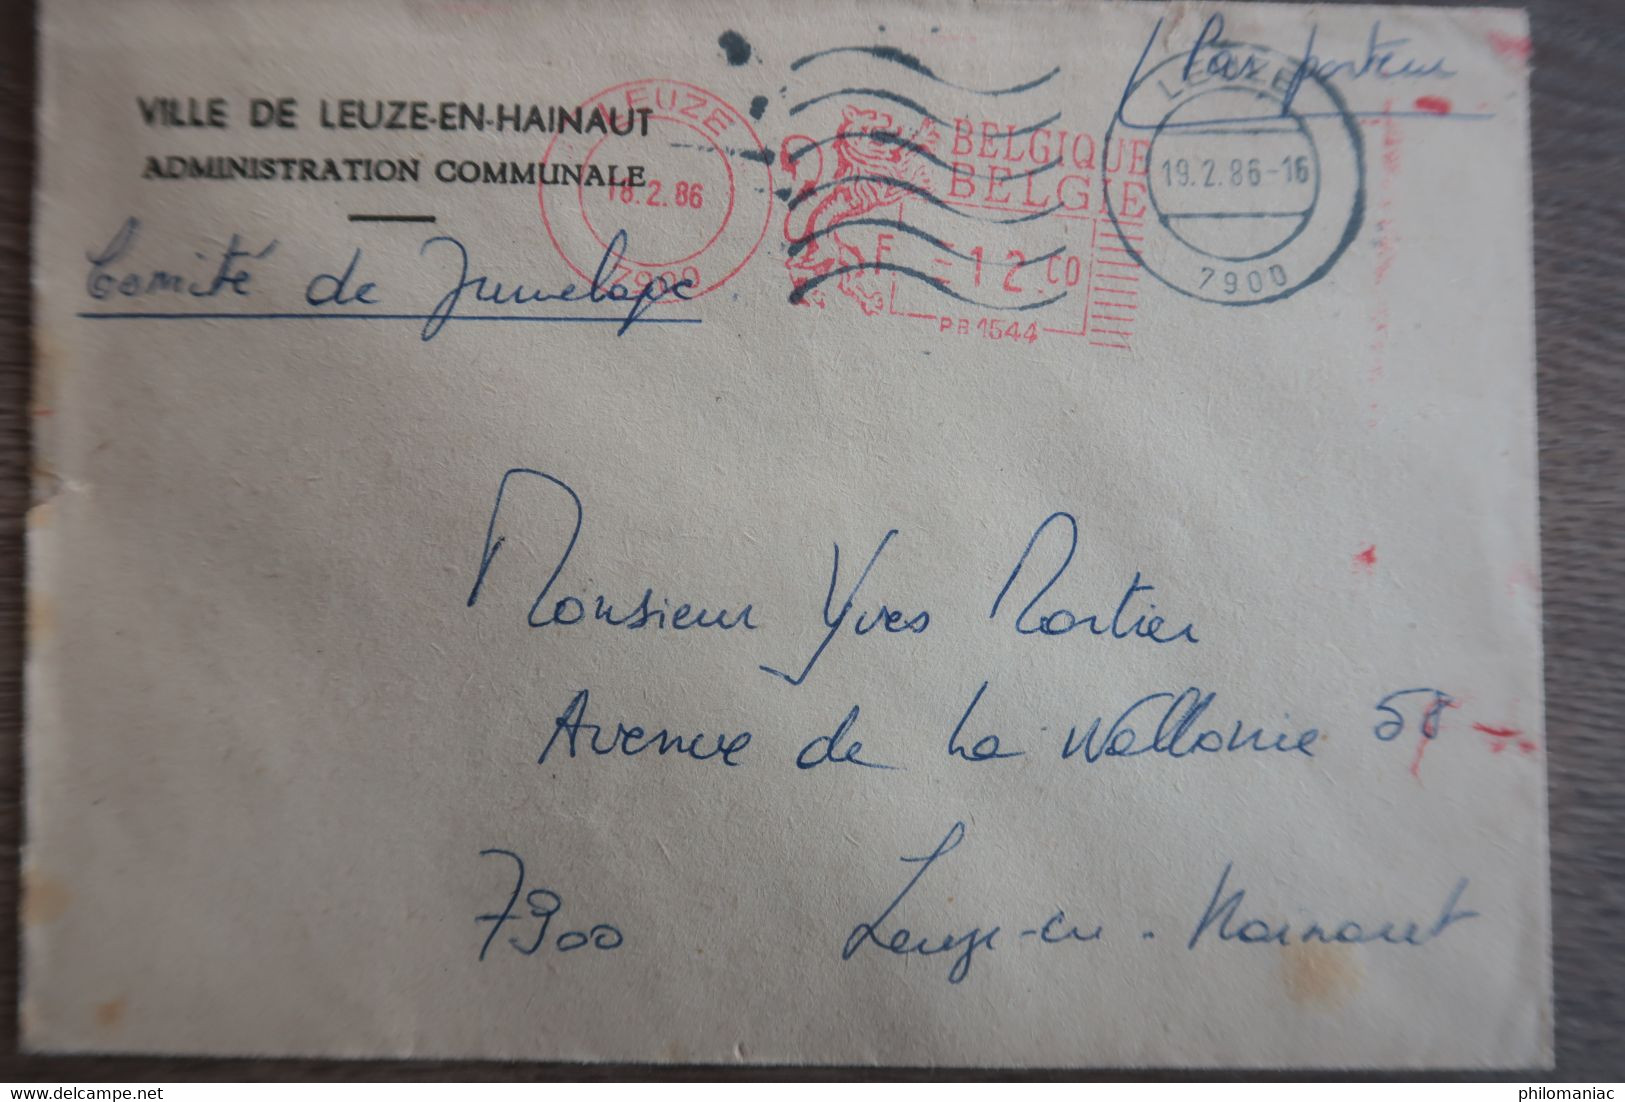 Par porteur
VILLE DE LEUZE-EN-HAINAUT
ADMINISTRATION COMMUNALE
Comité de Jumelage
LEUZE
18.2.86
7900
BELGIQUE
BELGIE
F =12.00
PB1544
LEUZE
19.2.86-16
7900
Monsieur Yves Mortier
Avenue de La Wallonie 58
7900 Leuze-en-Hainaut
www.delcampe.net
philomaniac